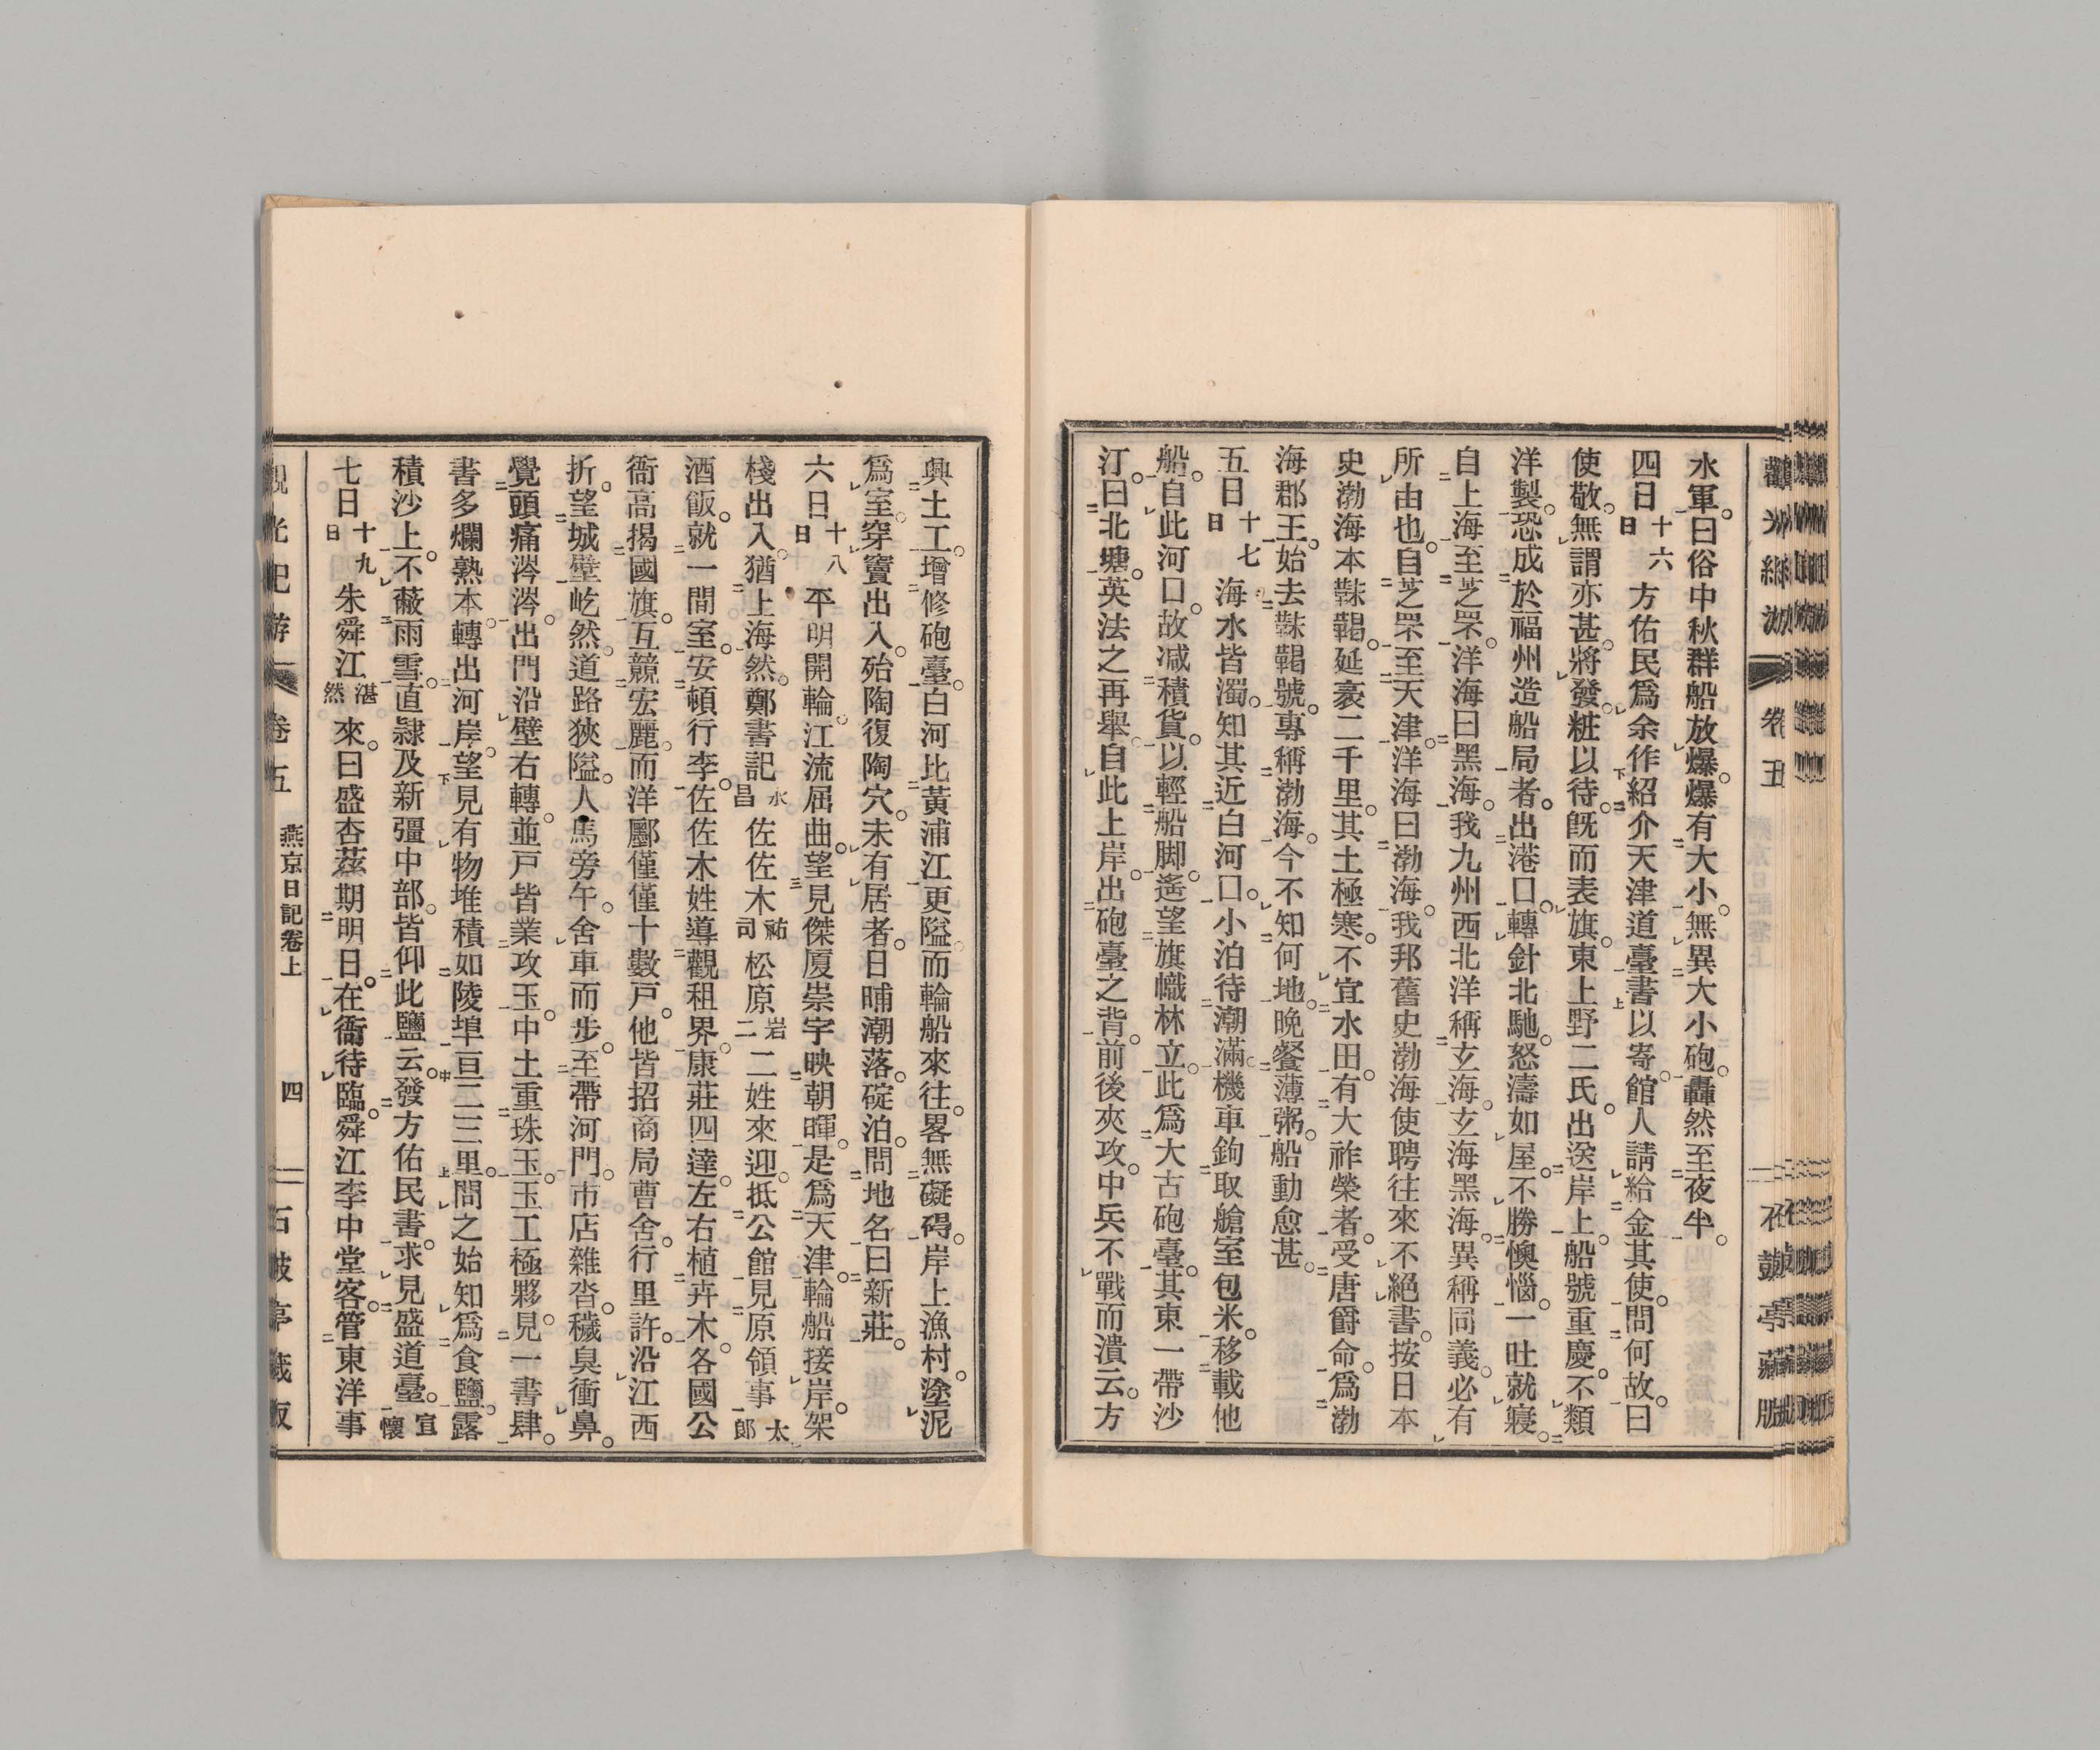 水軍。曰俗中秋群船放爆。爆有大小。無異大小砲。轟然至夜半。
四日十六日方佑民爲余作紹介天津道臺書以寄。館人請給金其使。問何故。曰
使敬。無謂亦甚。將發。粧以待。既而表旗。東上野二氏。出送岸上。船號重慶。不類
洋製。恐成於福州造船局者。出港口。轉針北馳。怒濤如屋。不勝懊惱。一吐就寢。
自上海至芝罘。洋海曰黑海。我九州西北洋稱玄海。玄海黑海。異稱同義。必有
所由也。自芝罘至天津。洋海曰渤海。我邦舊史渤海使聘往來不絕書。按日本
史渤海本靺鞨。延袤二千里。其土極寒。不宜水田。有大祚榮者。受唐爵命。爲渤
海郡王。始去靺鞨號。專稱渤海。今不知何地。晚餐薄粥。船動愈甚。
五日十七日海水皆濁。知其近白河口。小泊待潮滿。機車鉤取艙室包米。移載他
船。自此河口。故減積貨。以輕船脚。遙望旗幟林立。此爲大古砲臺。其東一帶沙
汀。曰北塘。英法之再舉。自此上岸。出砲臺之背。前後夾攻。中兵不戰而潰云。方
興土工。增修砲臺。白河比黃浦江更隘。而輪船來往。畧無礙碍。岸上漁村。塗泥
爲室。穿竇出入。殆陶復陶穴。未有居者。日晡潮落。碇泊。問地名。曰新莊。
六日十八日平明開輪。江流屈曲。望見傑廈崇宇映朝暉。是爲天津。輪船接岸。架
棧出入。猶上海然。鄭書記永昌佐佐木祐司松原岩二二姓來迎。抵公館見原領事太郎
酒飯。就一閒室。安頓行李。佐佐木姓導觀租界。康莊四達。左右植卉木。各國公
衙高揭國旗。互競宏麗。而洋酈僅僅十數戶。他皆招商局曹舍。行里許。沿江西
折。望城壁屹然。道路狹隘。人馬旁午。舍車而步。至帶河門。市店雜沓。穢臭衝鼻。
覺頭痛涔涔。出門沿壁右轉。並戶皆業攻玉。中土重珠玉。玉工極夥。見一書肆。
書多爛熟本。轉出河岸。望見有物堆積如陵埠亘二三里。問之始知爲食鹽。露
積沙上。不蔽雨雪。直隷及新彊中部。皆仰此鹽云。發方佑民書。求見盛道臺。宣懷
七日十九日朱舜江湛然來。曰盛杏蓀期明日。在衞待臨。舜江李中堂客。管東洋事
觀光紀游 卷五 燕京日記卷上 四 石鼓亭藏板